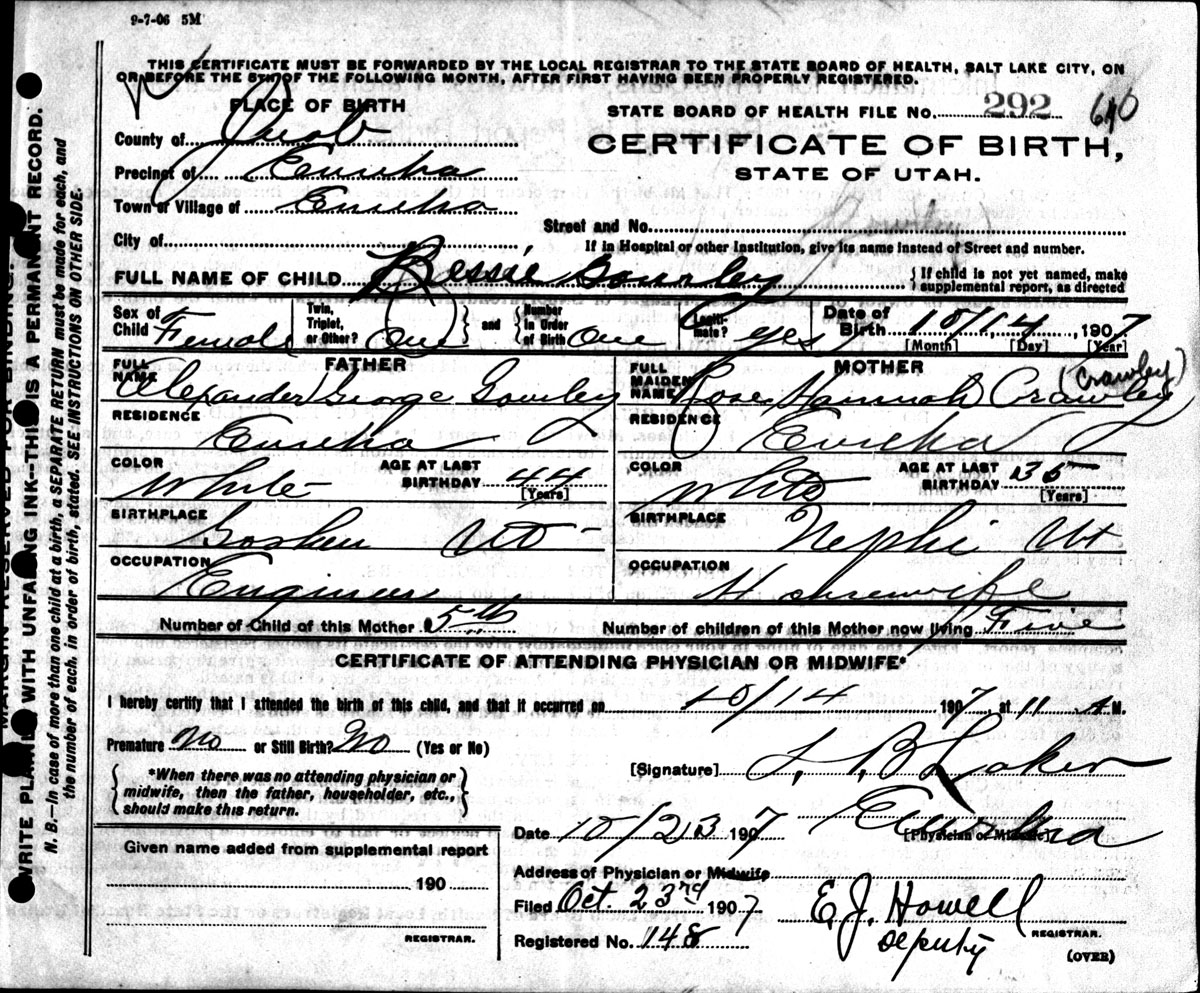 9-7-06 5M
THIS CERTIFICATE MUST BE FORWARDED BY THE LOCAL REGISTRAR TO THE STATE BOARD OF HEALTH, SALT LAKE CITY, ON
OR BEFORE THE 5TH OF THE FOLLOWING MONTH, AFTER FIRST HAVING BEEN PROPERLY REGISTERED.
PLACE OF BIRTH
County of Juab
Precinct of Eureka
Town or Village of Eureka
City of
STATE BOARD OF HEALTH FILE No. 292
CERTIFICATE OF BIRTH,
STATE OF UTAH.
Street and No.
If in Hospital or other Institution, give its name instead of Street and number.
FULL NAME OF CHILD Bessie Gourley
{If child is not yet named, make
supplemental report, as directed
Sex of Child Female
Twin, Triplet, or Other? One
and
Number in Order of Birth One
Legiti-mate? yes
Date of Birth 10/14, 1907
[Month] [Day] [Year]
FATHER
FULL NAME Alexander George Gourley
RESIDENCE Eureka
COLOR White
AGE AT LAST BIRTHDAY 44
[Years]
BIRTHPLACE Goshen Ut
OCCUPATION Engineer
MOTHER
FULL MAIDEN NAME Rose Hannah Crawley (Crawley)
RESIDENCE Eureka
COLOR White
AGE AT LAST BIRTHDAY 35
[Years]
BIRTHPLACE Nephi Ut
OCCUPATION Housewife
Number of Child of this Mother 5th
Number of children of this Mother now living Five
CERTIFICATE OF ATTENDING PHYSICIAN OR MIDWIFE*
I hereby certify that I attended the birth of this child, and that it occurred on 10/14 1907, at 11 A M.
Premature No or Still Birth? No (Yes or No)
{*When there was no attending physician or
midwife, then the father, householder, etc.,
should make this return.}
[Signature] Laker
Eureka
[Physician or Midwife]
Date 10/23 1907
Address of Physician or Midwife
Given name added from supplemental report
190
REGISTRAR.
Filed Oct. 23rd 1907
E.J. Howell
deputy
REGISTRAR.
Registered No. 148
(OVER)
MARGIN RESERVED FOR BINDING.
WRITE PLAINLY WITH UNFADING INK--THIS IS A PERMANENT RECORD.
N. B.—In case of more than one child at a birth, a SEPARATE RETURN must be made for each, and
the number of each, in order of birth, stated. SEE INSTRUCTIONS ON OTHER SIDE.